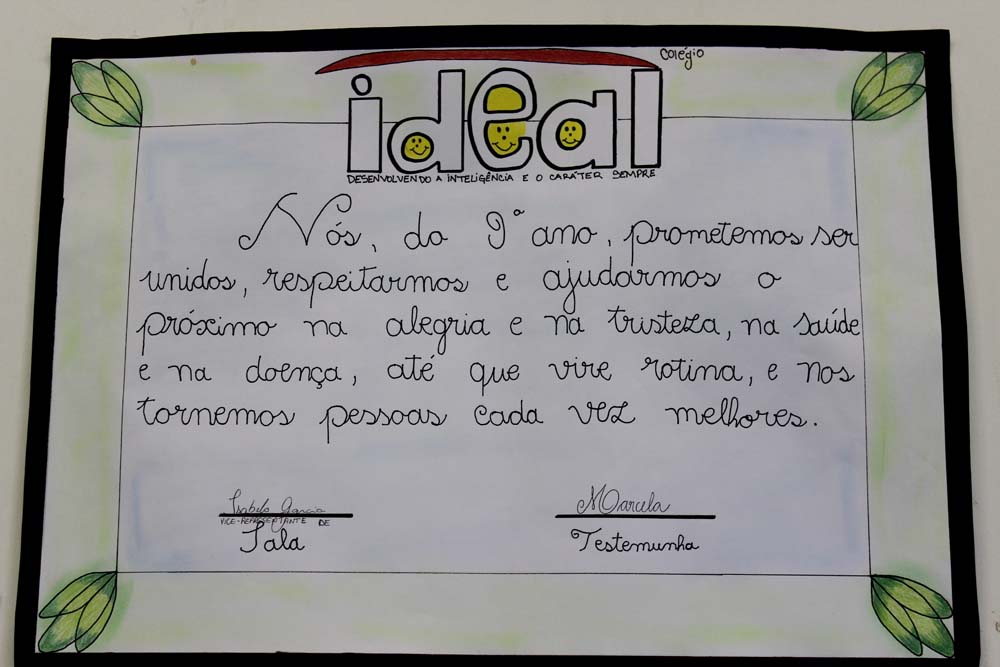 Colégio
ideal
DESENVOLVENDO A INTELIGÊNCIA E O CARÁTER SEMPRE
Nós, do 9º ano, prometemos ser
unidos, respeitarmos e ajudarmos o
próximo na alegria e na tristeza, na saúde
e na doença, até que vire rotina, e nos
tornemos pessoas cada vez melhores.
Isabela Garcia
VICE-REPRESENTANTE DE
Sala
Marcela
Testemunha